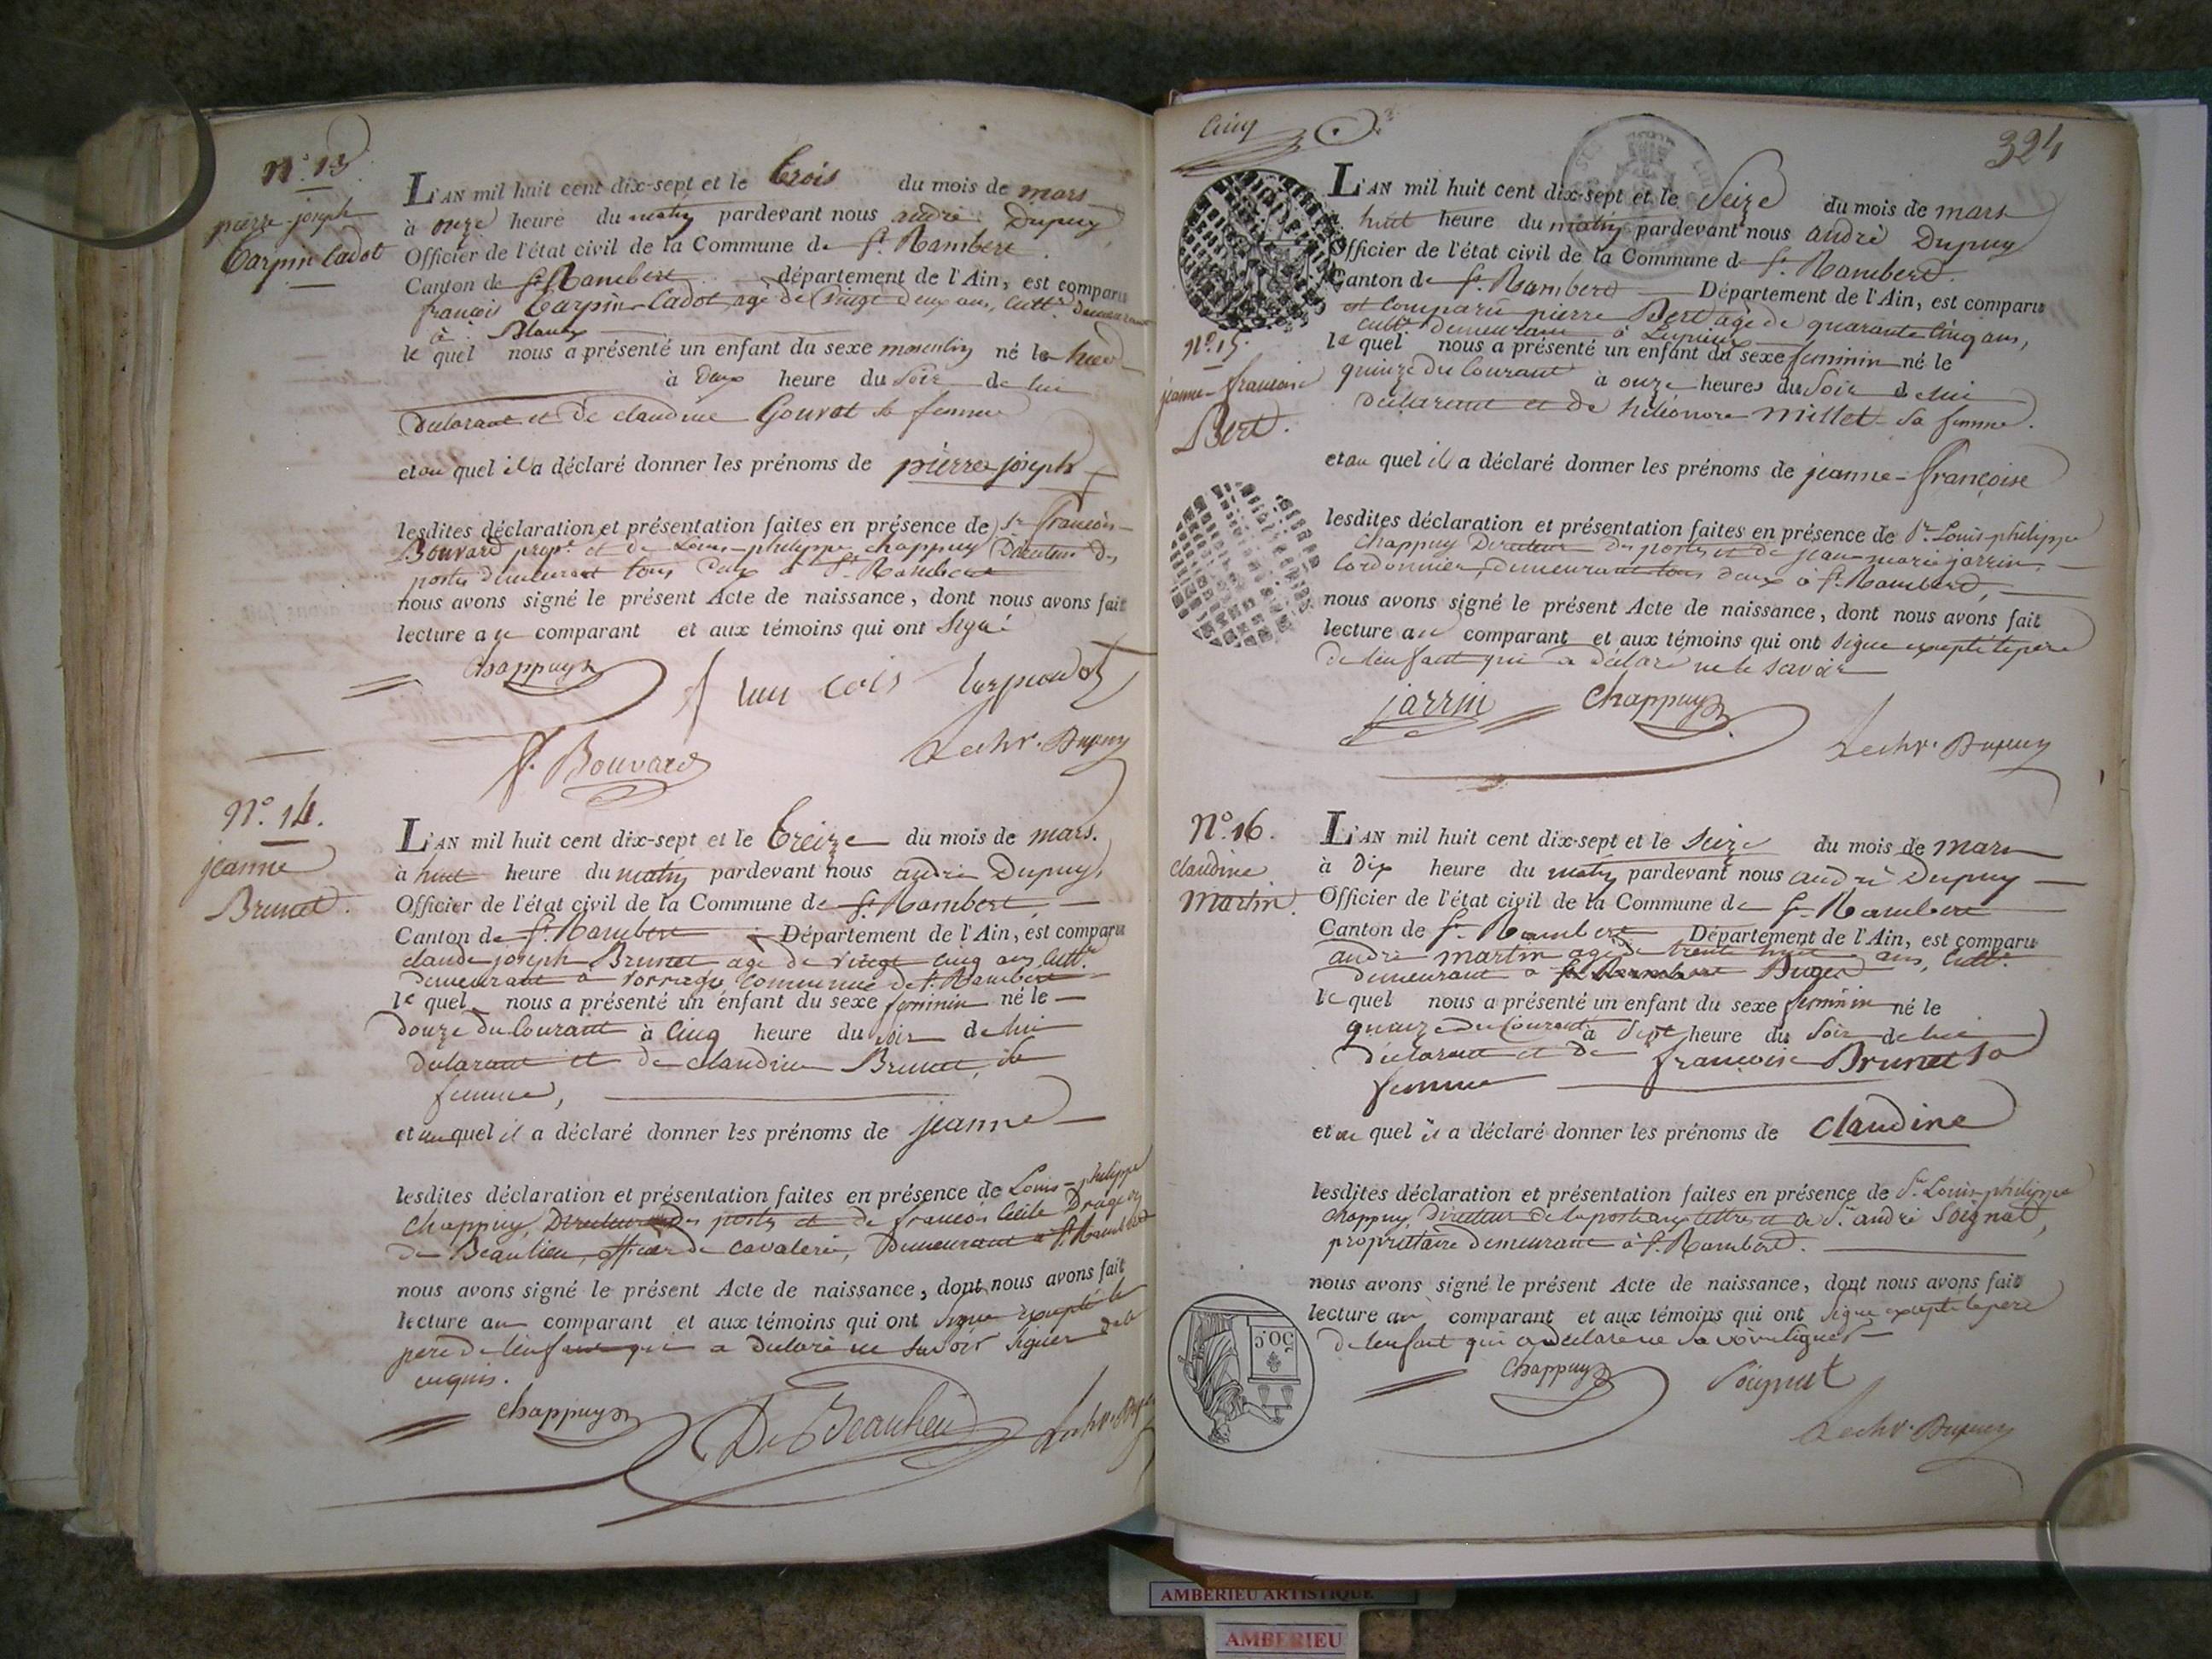 N.° 13
pierre-joseph
Carpin Cadot
L'AN mil huit cent dix-sept et le trois du mois de mars
à onze heure du matin pardevant nous andré Dupuy
Officier de l'état civil de la Commune de St. Rambert
Canton de St. Rambert département de l'Ain, est comparu
françois Carpin-Cadot agé de vingt deux ans, cultr. demeurant
à Blanaz
le quel nous a présenté un enfant du sexe masculin né le hier
à deux heure du soir de lui
déclarant et de claudine Gouvat sa femme
et au quel il a déclaré donner les prénoms de pierre-joseph
lesdites déclaration et présentation faites en présence de Sr. françois
Bouvard propre. et de Louis-philippe chappuy Directeur des
postes demeurant tous deux à St. Rambert
nous avons signé le présent Acte de naissance, dont nous avons fait
lecture au comparant et aux témoins qui ont signé
Chappuy
f. Bouvard
Lechr. Dupuy
N.° 14.
jeanne
Brunet.
L'AN mil huit cent dix-sept et le treize du mois de mars.
à huit heure du matin pardevant nous andré Dupuy,
Officier de l'état civil de la Commune de St. Rambert,
Canton de St. Rambert Département de l'Ain, est comparu
claude joseph Brunet agé de vingt cinq ans cultr.
demeurant à Commune de St. Rambert
le quel nous a présenté un enfant du sexe feminin né le
douze du Courant à cinq heure du soir de lui
déclarant et de claudine Brunet, sa
femme,
et au quel il a déclaré donner les prénoms de jeanne
lesdites déclaration et présentation faites en présence de Louis-philippe
chappuy, Directeur des postes et de francois Cécile
de Beaulieu, officier de cavalerie, Demeurant à St. Rambert
nous avons signé le présent Acte de naissance, dont nous avons fait
lecture au comparant et aux témoins qui ont signé excepté le
père de l'enfant qui a déclaré ne savoir signer de ce
enquis.
Chappuy
De Beaulieu
Lechr. Dupuy
Cinq
324
L'AN mil huit cent dix-sept et le Seize du mois de mars
à huit heure du matin pardevant nous andré Dupuy
Officier de l'état civil de la Commune de St. Rambert
Canton de St. Rambert Département de l'Ain, est comparu
est comparu pierre Bert agé de quarante cinq ans,
cultr. demeurant à Lupieux
N.° 15.
jeanne-francoise
Bert.
le quel nous a présenté un enfant du sexe feminin né le
quinze du Courant à onze heures du Soir de lui
déclarant et de héléonore millet sa femme.
et au quel il a déclaré donner les prénoms de jeanne-françoise
lesdites déclaration et présentation faites en présence de Sr. Louis-philippe
chappuy Directeur des postes et de jean-marie jarrin
Cordonnier, demeurant tous deux à St. Rambert,
nous avons signé le présent Acte de naissance, dont nous avons fait
lecture au comparant et aux témoins qui ont signé excepté le père
de l'enfant qui a déclaré ne le savoir
jarrin
Chappuy
Lechr. Dupuy
N.° 16.
claudine
Martin.
L'AN mil huit cent dix-sept et le seize du mois de mars
à dix heure du matin pardevant nous andré Dupuy
Officier de l'état civil de la Commune de St. Rambert
Canton de St. Rambert Département de l'Ain, est comparu
andré martin agé de trente huit ans, cultr.
demeurant à
le quel nous a présenté un enfant du sexe feminin né le
quinze du Courant à sept heure du soir de lui
déclarant et de francoise Brunet sa
femme
et au quel il a déclaré donner les prénoms de claudine
lesdites déclaration et présentation faites en présence de Sr. Louis-philippe
chappuy, directeur de la poste aux lettres et de Sr. andré Soignat,
propriétaire demeurant à St. Rambert.
nous avons signé le présent Acte de naissance, dont nous avons fait
lecture au comparant et aux témoins qui ont signé excepté le père
de l'enfant qui a déclaré ne savoir signer
50.C
Chappuy
Soignat
Lechr. Dupuy
AMBERIEU ARTISTIQUE
AMBERIEU